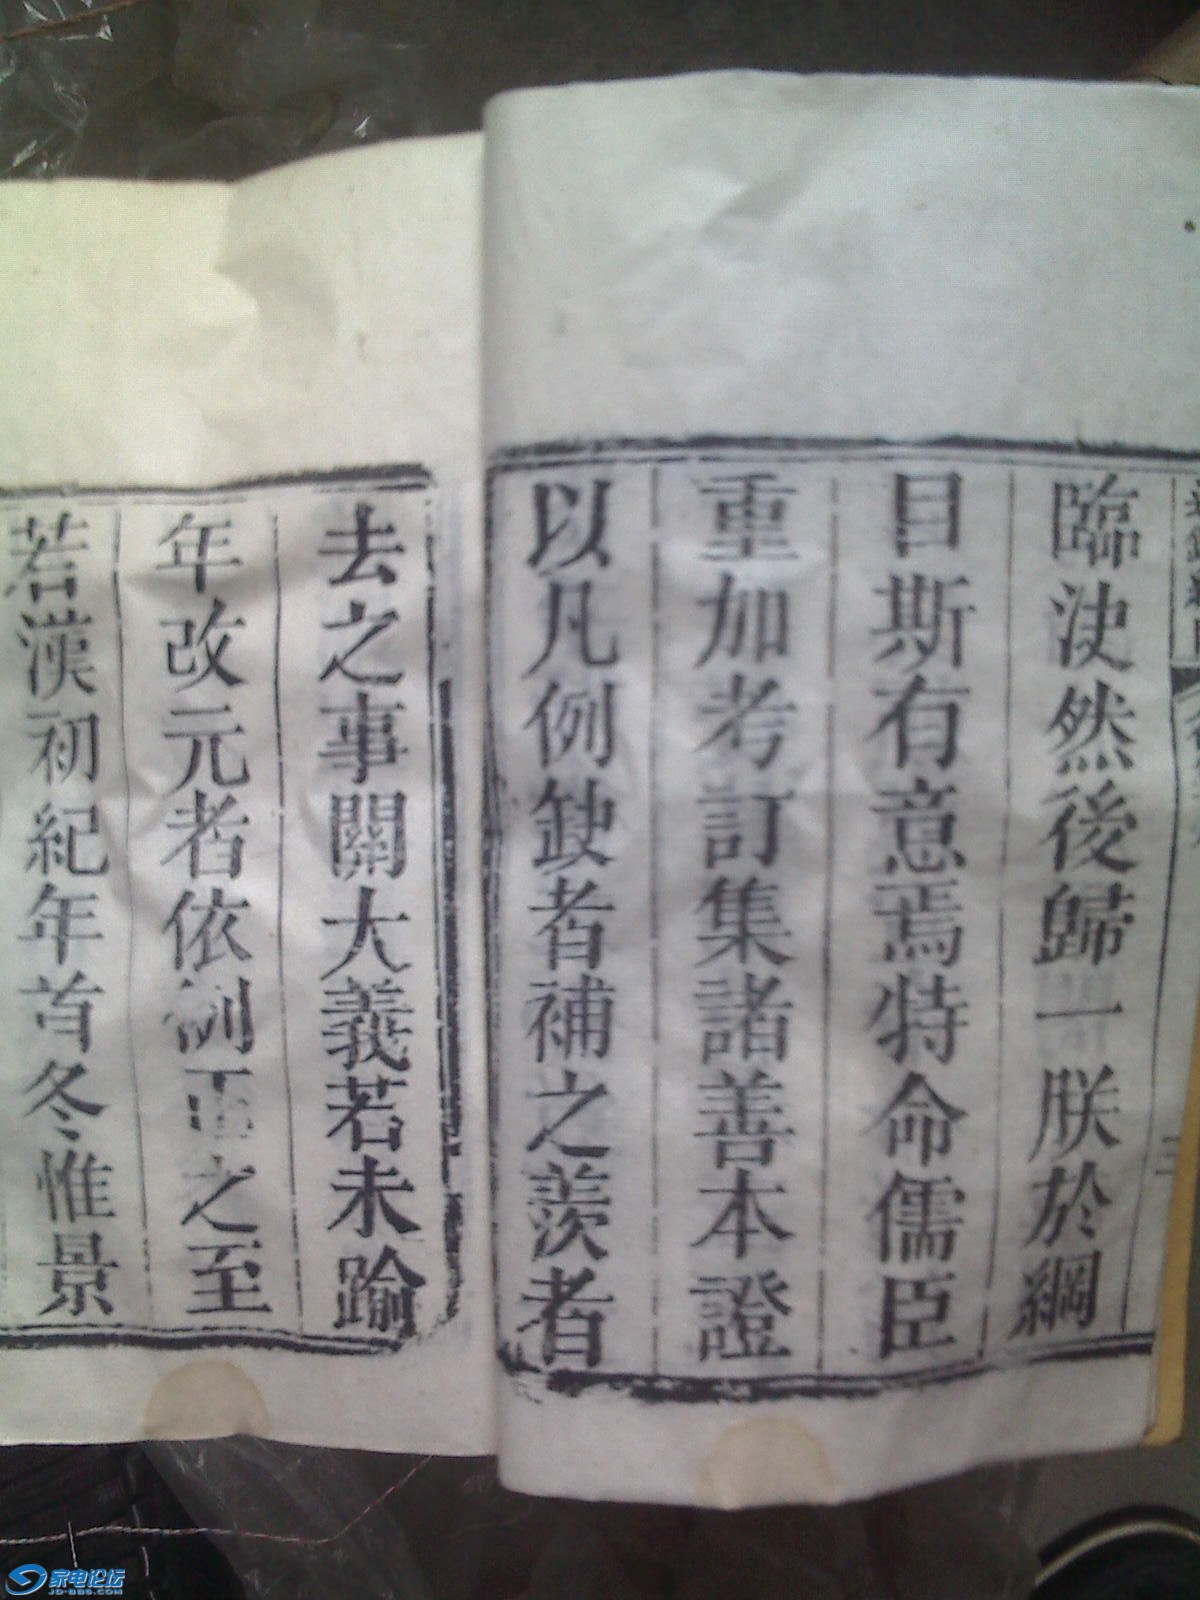 臨決然後歸一朕於綱
目斯有意焉特命儒臣
重加考訂集諸善本證
以凡例缺者補之羨者
去之事關大義若未踰
年改元者依例正之至
若漢初紀年首冬惟景
家电论坛
JD-BBS.COM